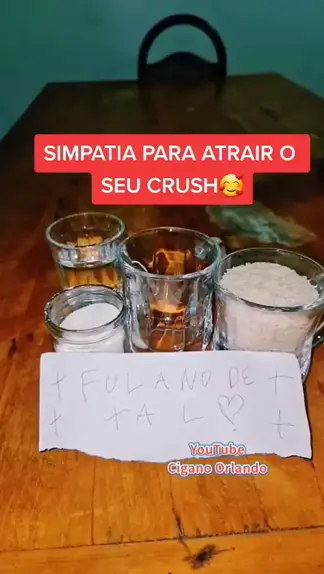 SIMPATIA PARA ATRAIR O
SEU CRUSH🥰
FULANO DE
TAL
YouTube
Cigano Orlando